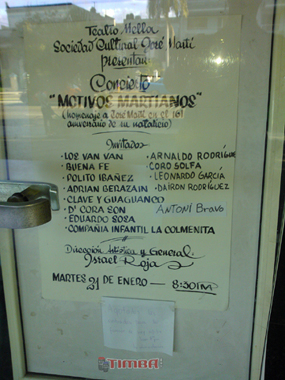 Teatro Mella
Sociedad Cultural José Martí
presentan:
Concierto
"MOTIVOS MARTIANOS"
(homenaje a José Martí en el 161
aniversario de su natalicio)
Invitados
• LOS VAN VAN
• BUENA FE
• POLITO IBAÑEZ
• ADRIAN BERAZAIN
• CLAVE Y GUAGUANCO
• D' CORA SON
• EDUARDO SOSA
• COMPAÑIA INFANTIL LA COLMENITA
• ARNALDO RODRIGUE
• CORO SOLFA
• LEONARDO GARCÍA
• DAIRON RODRÍGUEZ
ANTONI BRAVO
Dirección Artística y General.
Israel Rojas
MARTES 21 DE ENERO — 8:30PM
TIMBA